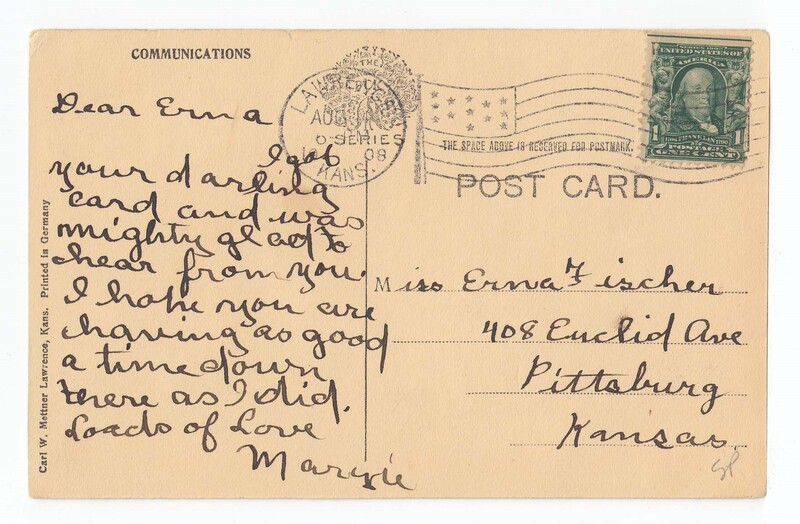 COMMUNICATIONS
Dear Erna
I got
your darling
card and was
mighty glad to
hear from you.
I hope you are
having as good
a time down
there as I did.
Loads of Love
Margie
Carl W. Mettner Lawrence, Kans. Printed in Germany
LAWRENCE
AUG
KANS.
08
THE SPACE ABOVE IS RESERVED FOR POSTMARK.
POST CARD.
SERIES 1902
UNITED STATES OF
AMERICA
1 1
1706 FRANKLIN 1790
POSTAGE
ONE CENT
Miss Erna Fischer
408 Euclid Ave
Pittsburg
Kansas